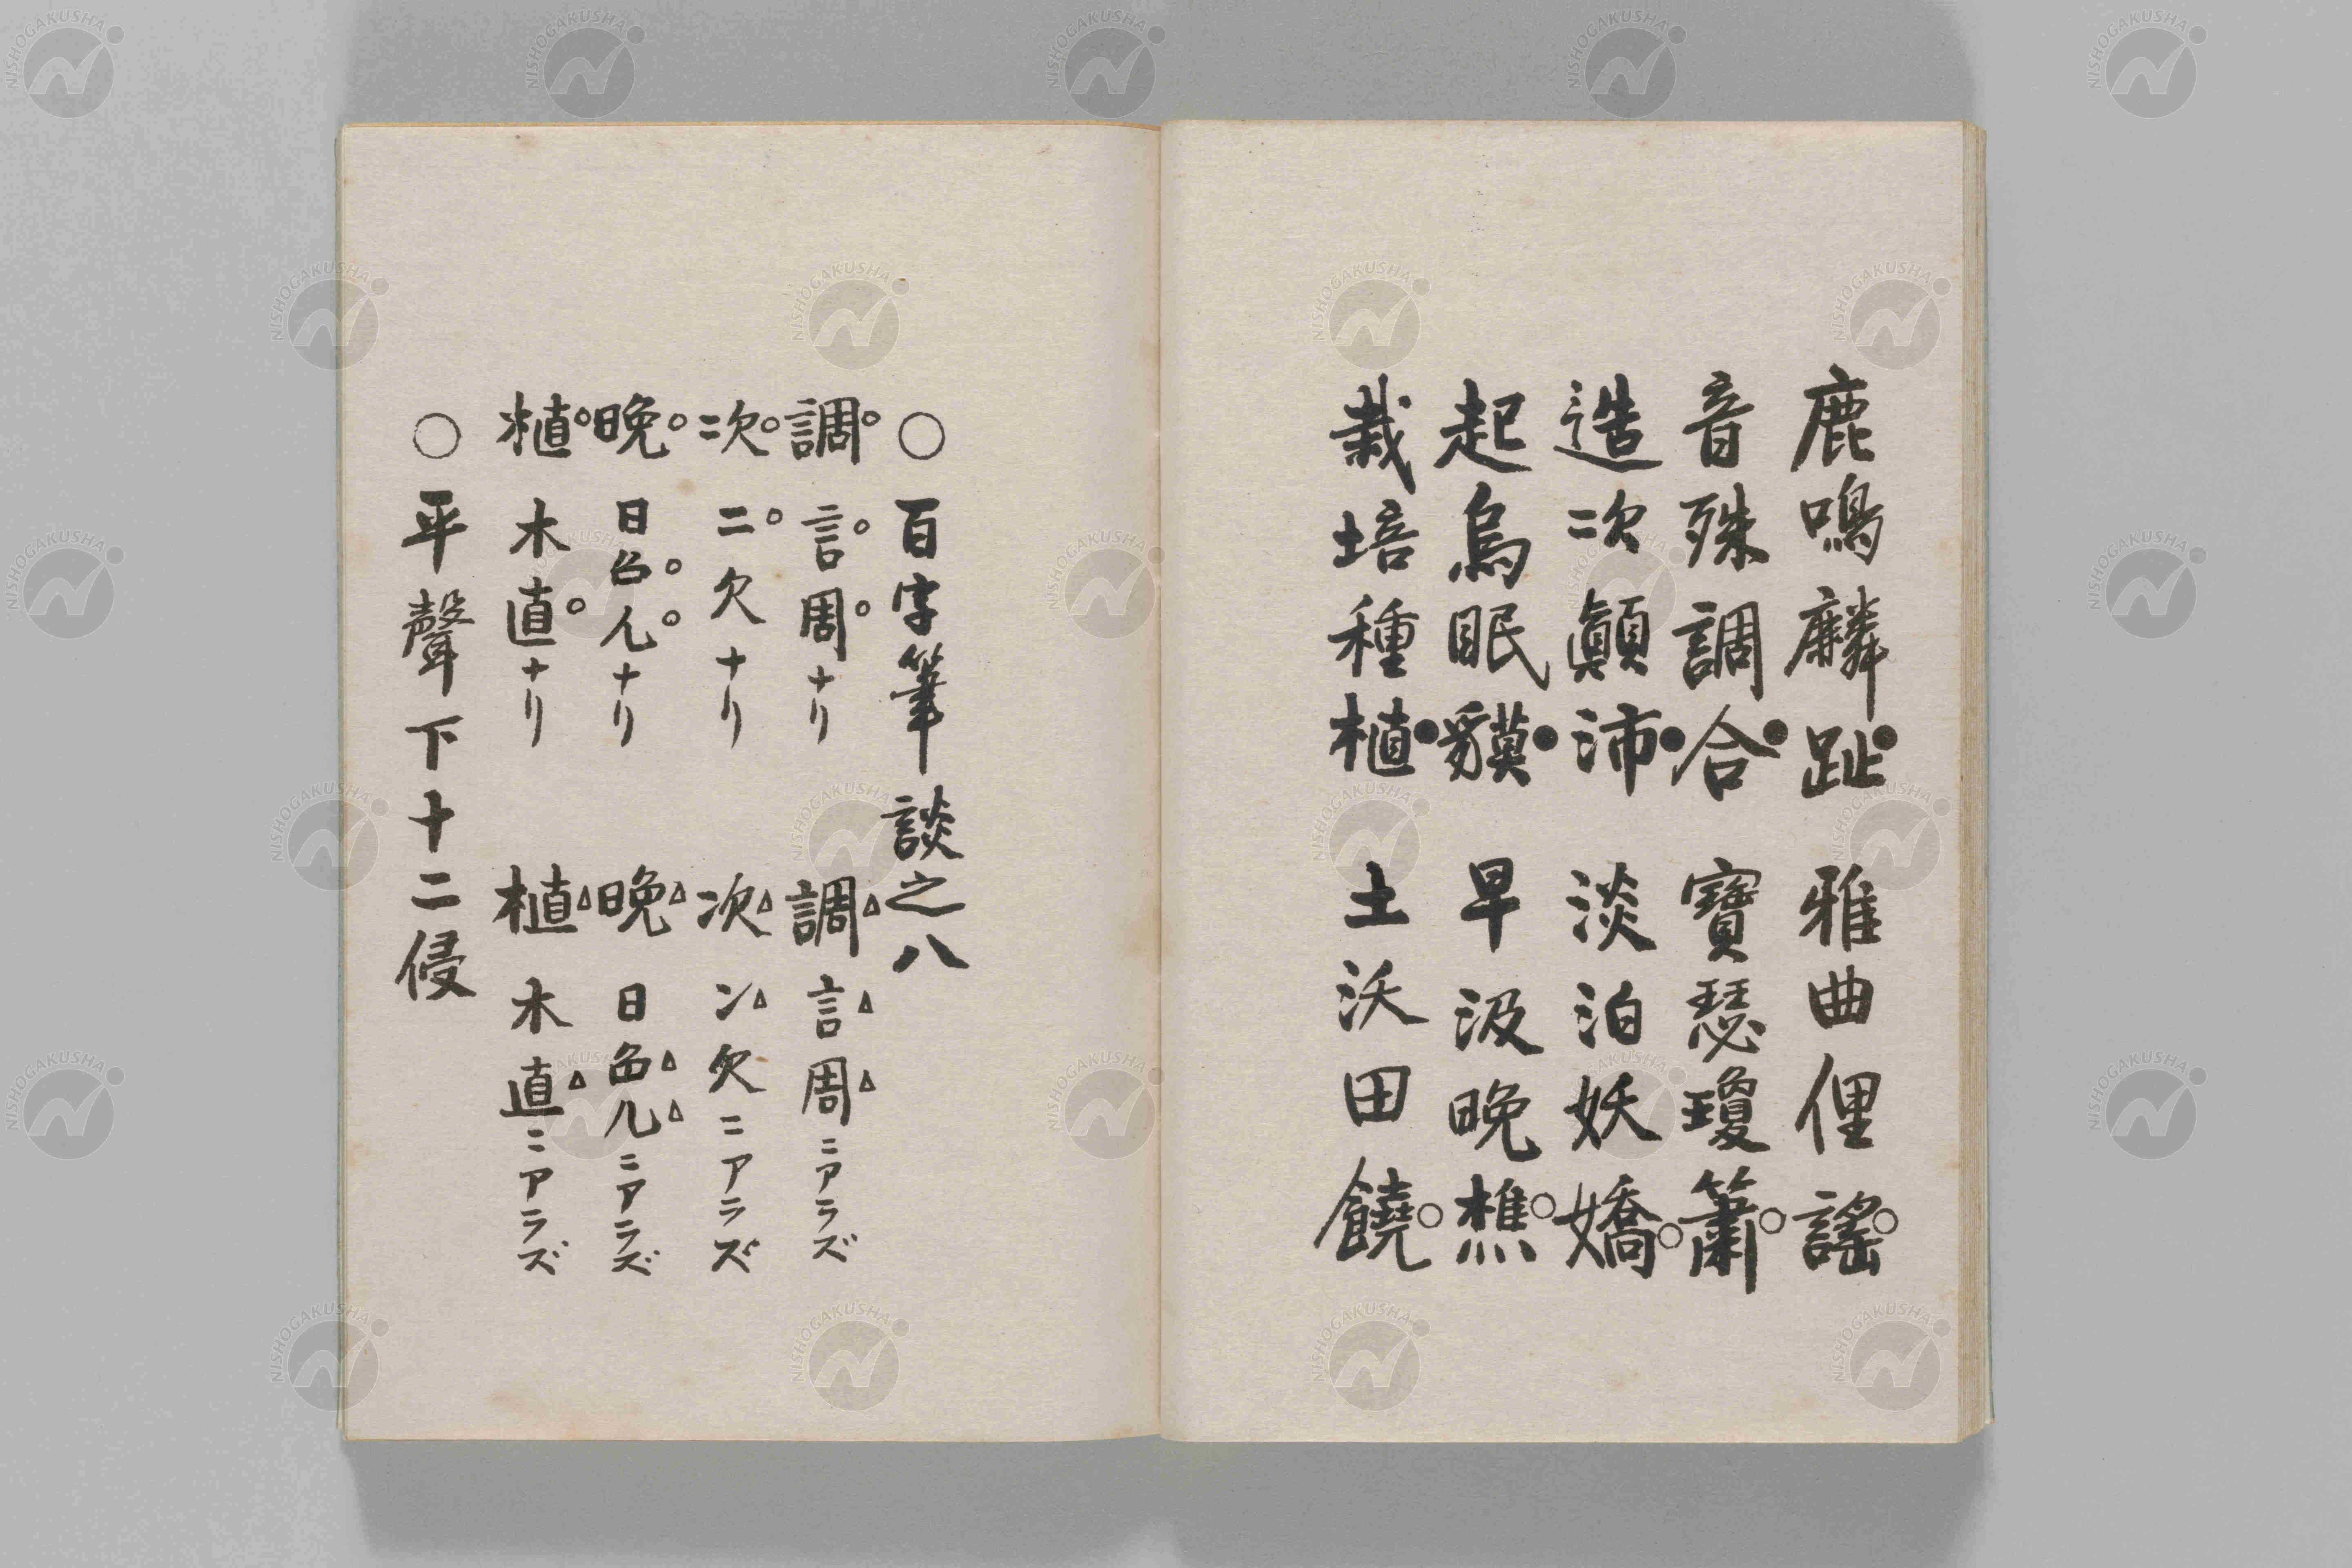 鹿鳴麟趾　雅曲俚謠
音殊調合　寶瑟瓊簫
造次顚沛　淡泊妖嬌
起烏眠貘　早汲晩樵
栽培種植　土沃田饒
○百字筆談之八
調　言周ナリ　調　言周ニアラズ
次　二欠ナリ　次　冫欠ニアラズ
晩　日ナリ　晩　日ニアラズ
植　木直ナリ　植　木直ニアラズ
○平聲下十二侵